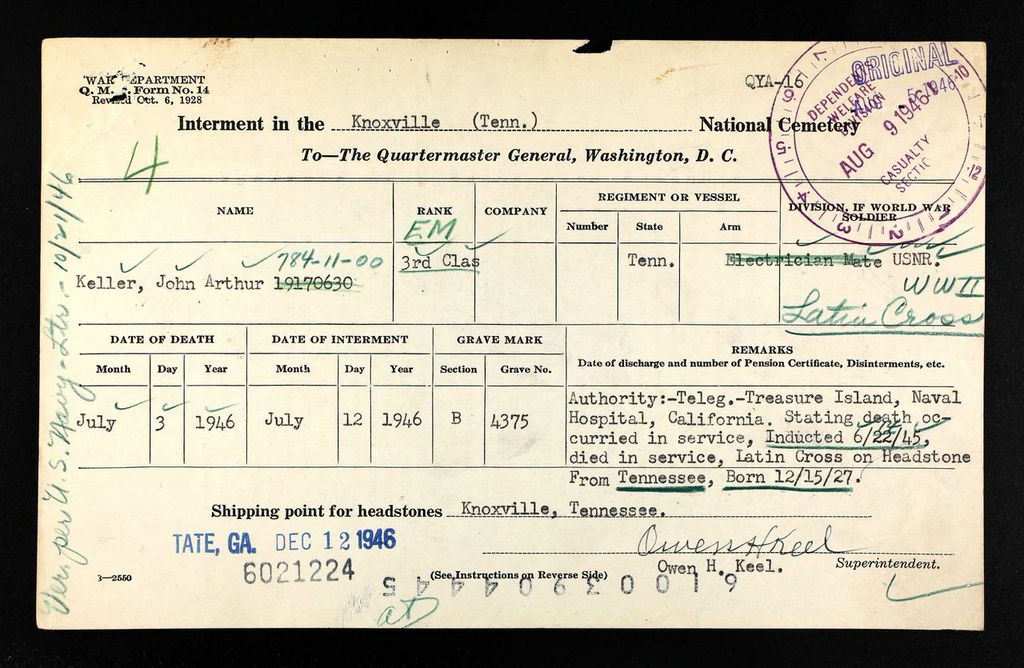 WAR DEPARTMENT
Q. M. C. Form No. 14
Revised Oct. 6, 1928
QYA-16
ORIGINAL
DEPENDENT WELFARE DIVISION
AUG 9 1946
CASUALTY SECTIO
Interment in the Knoxville (Tenn.) National Cemetery
To—The Quartermaster General, Washington, D. C.
4
NAME
RANK
COMPANY
REGIMENT OR VESSEL
DIVISION, IF WORLD WAR SOLDIER
Number
State
Arm
EM
Keller, John Arthur 19170630
784-11-00
3rd Clas
Tenn.
Electrician Mate USNR.
WWII
Latin Cross
DATE OF DEATH
DATE OF INTERMENT
GRAVE MARK
REMARKS
Date of discharge and number of Pension Certificate, Disinterments, etc.
Month
Day
Year
Month
Day
Year
Section
Grave No.
July
3
1946
July
12
1946
B
4375
Authority:-Teleg.-Treasure Island, Naval
Hospital, California. Stating death oc-
curried in service, Inducted 6/22/45,
died in service, Latin Cross on Headstone
From Tennessee, Born 12/15/27.
Shipping point for headstones Knoxville, Tennessee.
TATE, GA. DEC 12 1946
6021224
Owen H Keel
Owen H. Keel.
Superintendent.
3—2550
(See Instructions on Reverse Side)
Veri. per U.S. Navy-Ltr.-10/21/46